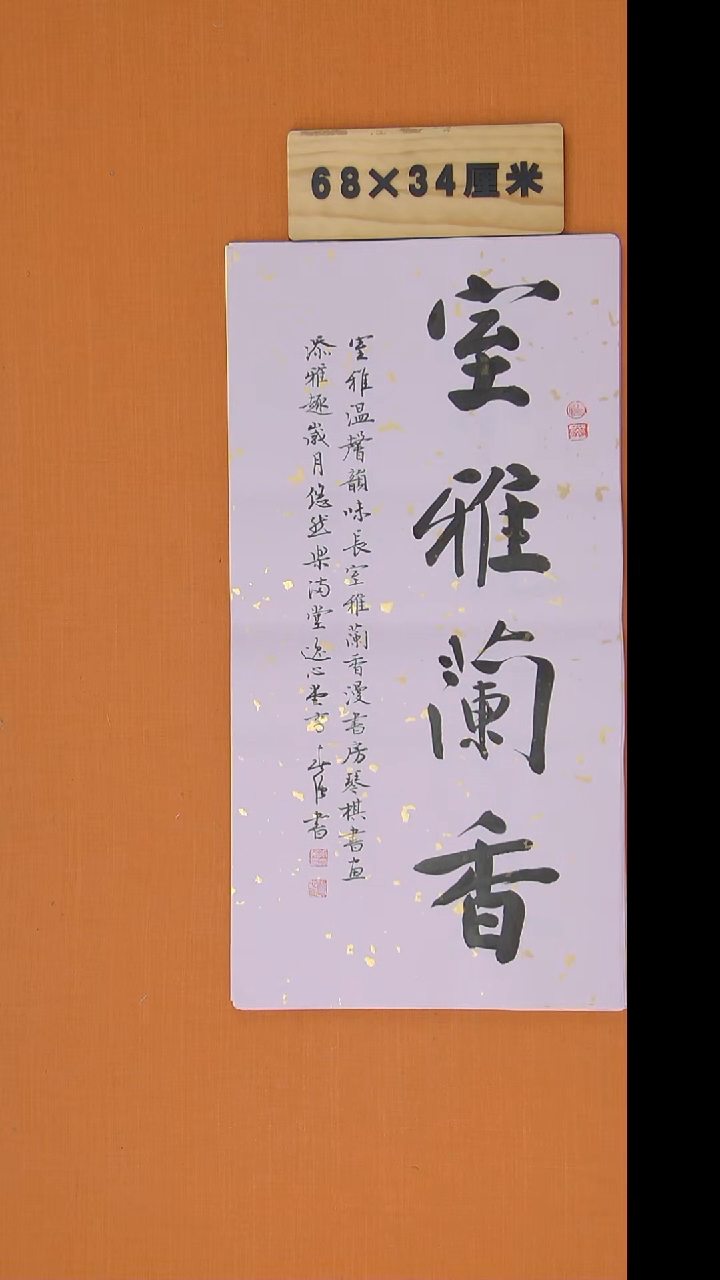 68×34厘米
室雅蘭香
室雅温馨韻味長室雅蘭香漫書房琴棋書画
添雅趣歲月悠然樂满堂逸心堂書